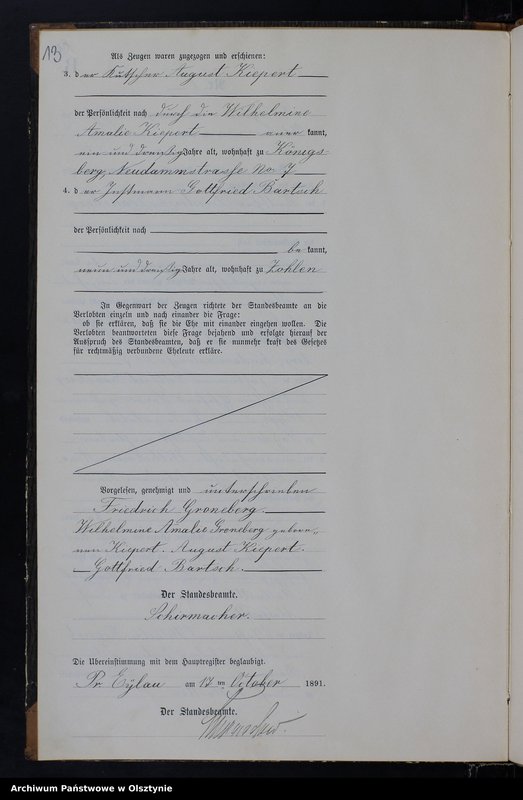 13
Als Zeugen waren zugezogen und erschienen:
3. der Kutscher August Kiepert
der Persönlichkeit nach durch die Wilhelmine
Amalie Kiepert anerkannt,
ein und dreißig Jahre alt, wohnhaft zu Königs-
berg, Neudammstrasse No 7
4. der Instmann Gottfried Bartsch
der Persönlichkeit nach
bekannt,
neun und dreißig Jahre alt, wohnhaft zu Zohlen
In Gegenwart der Zeugen richtete der Standesbeamte an die
Verlobten einzeln und nach einander die Frage:
ob sie erklären, daß sie die Ehe mit einander eingehen wollen. Die
Verlobten beantworteten diese Frage bejahend und erfolgte hierauf der
Ausspruch des Standesbeamten, daß er sie nunmehr kraft des Gesetzes
für rechtmäßig verbundene Eheleute erkläre.
Vorgelesen, genehmigt und unterschrieben
Friedrich Groneberg.
Wilhelmine Amalie Groneberg gebore„
nen Kiepert. August Kiepert.
Gottfried Bartsch.
Der Standesbeamte.
Schirmacher.
Die Übereinstimmung mit dem Hauptregister beglaubigt.
Pr. Eylau am 17 ten October 1891.
Der Standesbeamte.
Archiwum Państwowe w Olsztynie